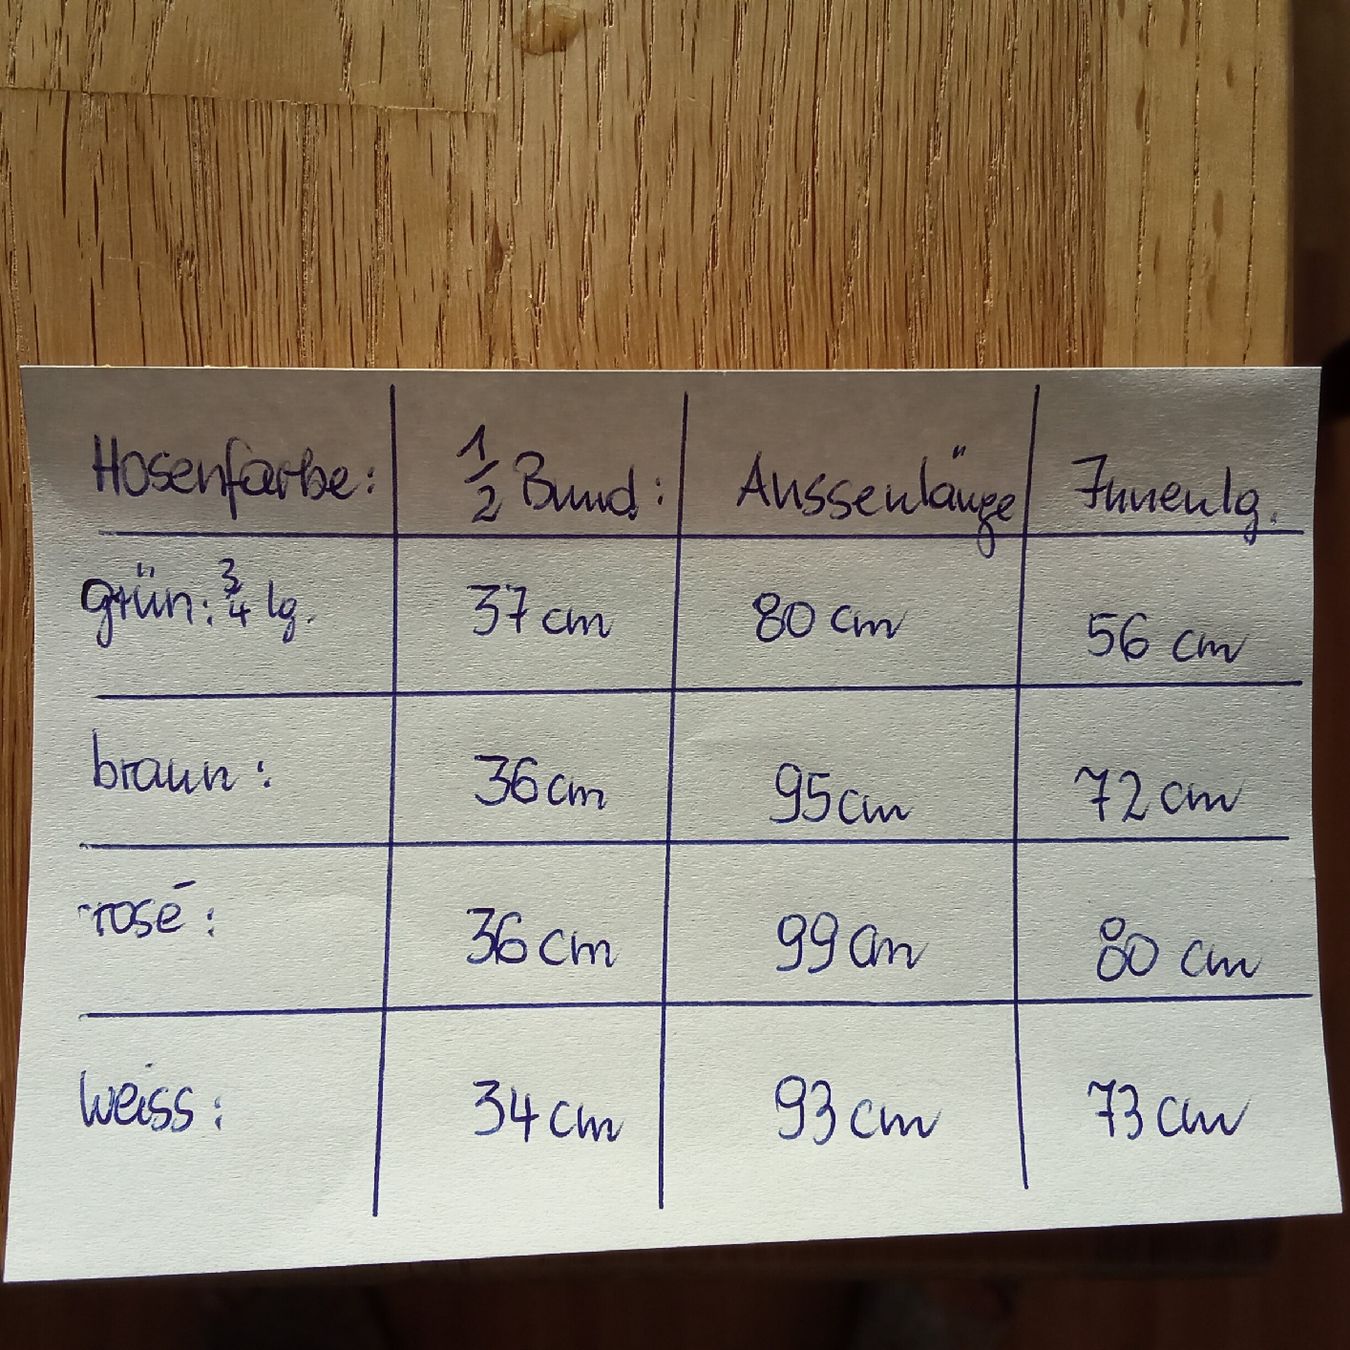 Hosenfarbe: 1/2 Bund: Aussenlänge Innenlg.
grün: 3/4 lg. 37 cm 80 cm 56 cm
braun: 36 cm 95 cm 72 cm
rosé: 36 cm 99 cm 80 cm
weiss: 34 cm 93 cm 73 cm